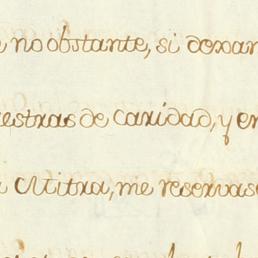 no obstante, si doxan
estras de caridad, y en
Mitra, me reservase